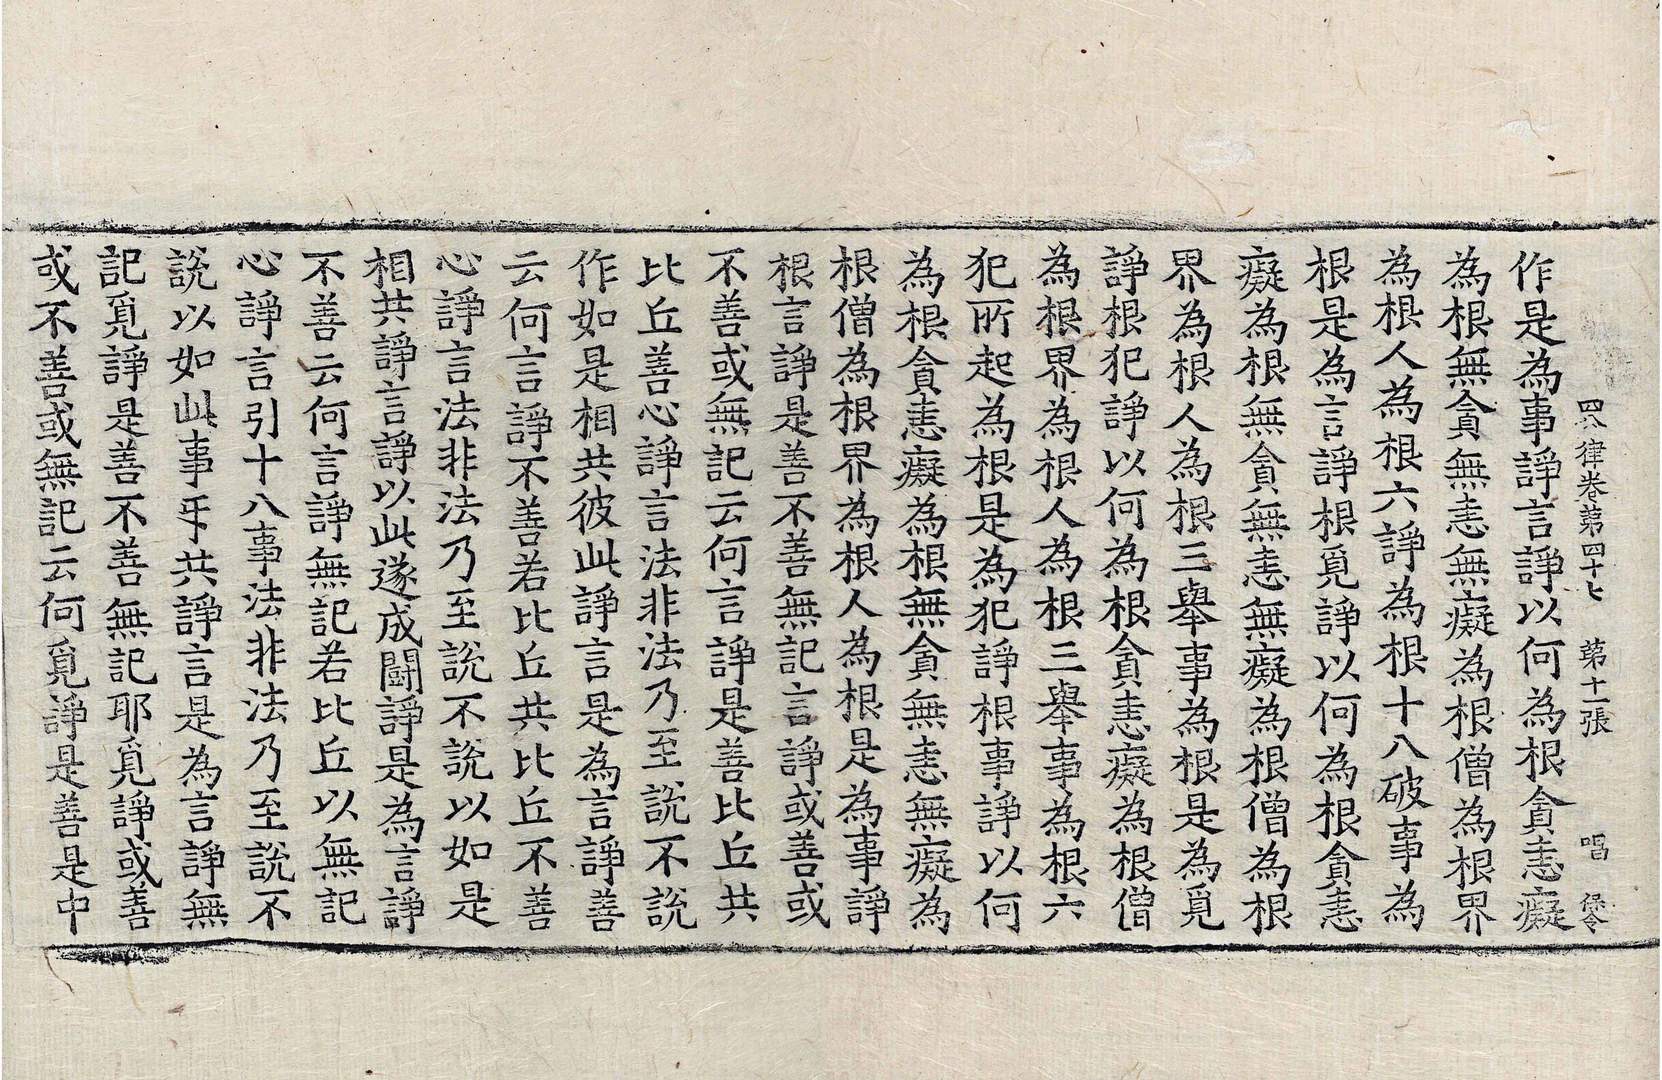 四分律卷第四十七 第十一張 唱 徐令
作是為事諍言諍以何為根貪恚癡
為根無貪無恚無癡為根僧為根界
為根人為根六諍為根十八破事為
根是為言諍根覓諍以何為根貪恚
癡為根無貪無恚無癡為根僧為根
界為根人為根三舉事為根是為覓
諍根犯諍以何為根貪恚癡為根僧
為根界為根人為根三舉事為根六
犯所起為根是為犯諍根事諍以何
為根貪恚癡為根無貪無恚無癡為
根僧為根界為根人為根是為事諍
根言諍是善不善無記言諍或善或
不善或無記云何言諍是善比丘共
比丘善心諍言法非法乃至說不說
作如是相共彼此諍言是為言諍善
云何言諍不善若比丘共比丘不善
心諍言法非法乃至說不說以如是
相共諍言諍以此遂成鬪諍是為言諍
不善云何言諍無記若比丘以無記
心諍言引十八事法非法乃至說不
說以如此事㸦共諍言是為言諍無
記覓諍是善不善無記耶覓諍或善
或不善或無記云何覓諍是善是中